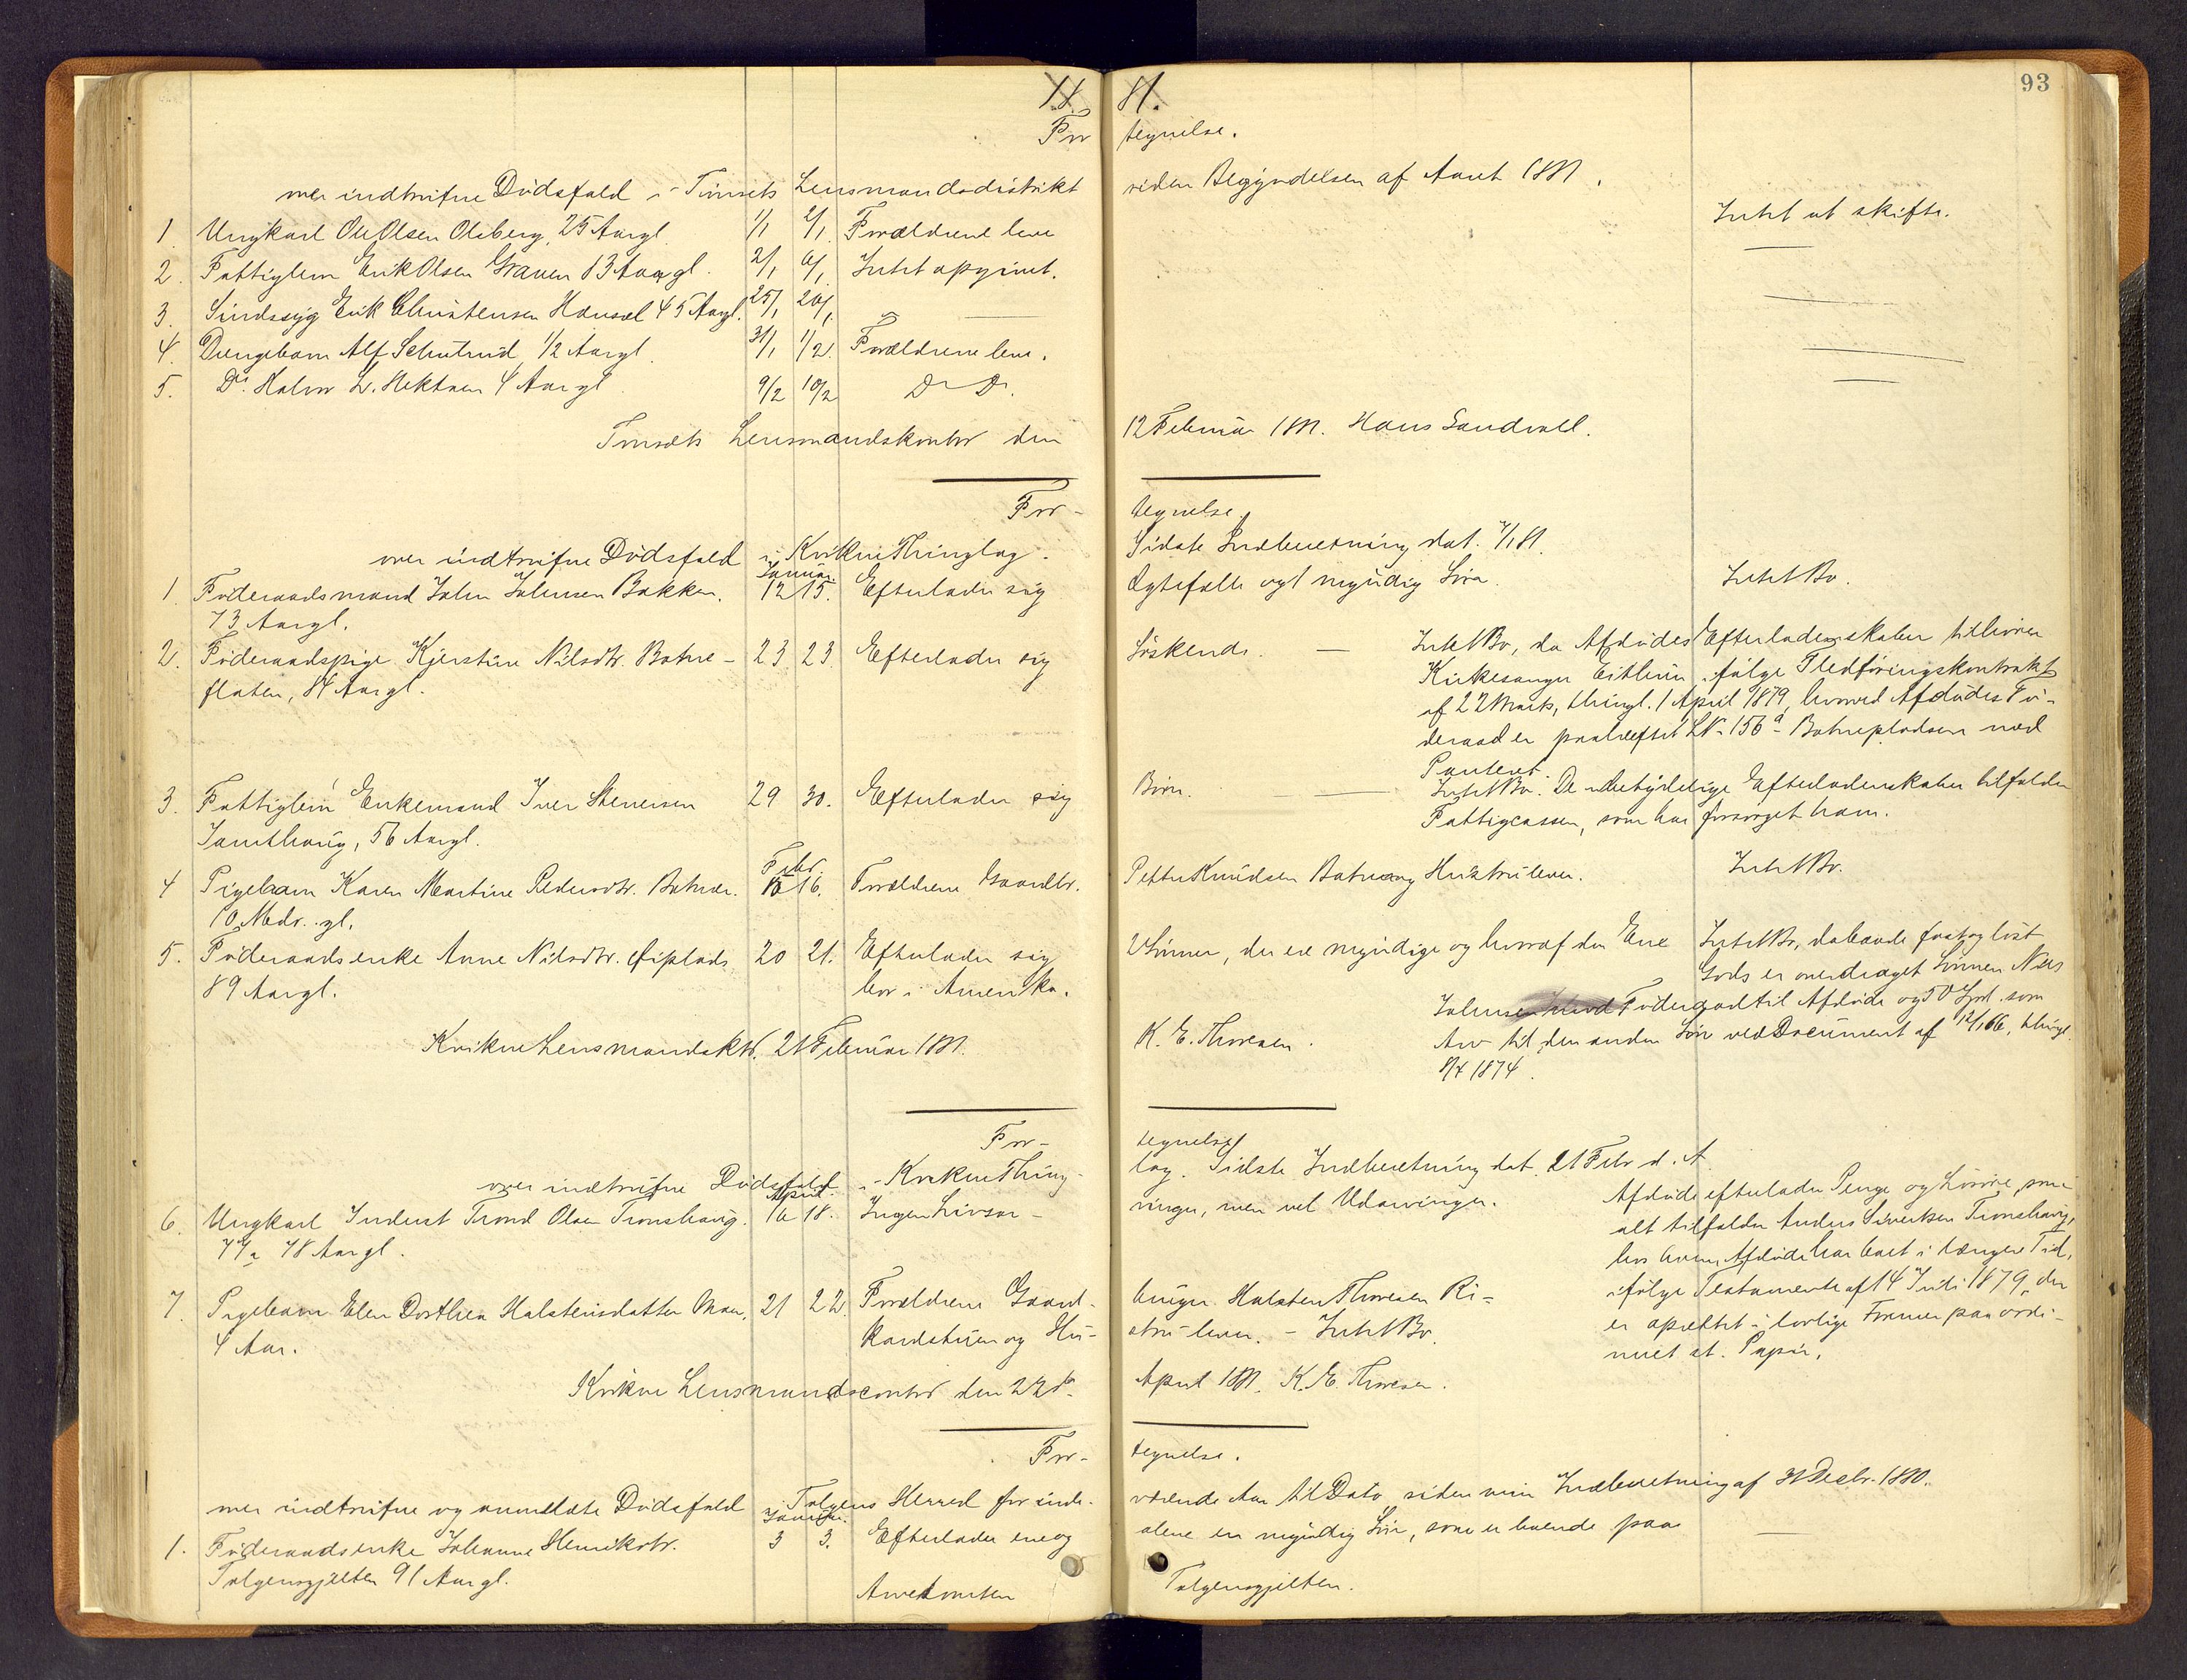 93
18 81.
For tegnelse.
over indtrufne Dødsfald i Tønsets Lensmandsdistrikt siden Begyndelsen af Aaret 1881.
1. Ungkarl Ole Olsen Olsberg, 25 Aar gl. 1/1 2/1 Forældrene leve Intet at skifte.
2. Fattiglem Erik Olsen Grauen 83 Aar gl. 2/1 6/1 Intet opgivet. —
3. Sindssyg Erik Christensen Hansæl 45 Aar gl. 25/1 26/1 — —
4. Drengebarn Alf Schulrud 1/2 Aar gl. 31/1 1/2 Forældrene leve. —
5. Do. Halvor L. Hektoen 4 Aar gl 9/2 10/2 Do Do. —
Tønsets Lensmandskontor den 12 Februar 1881. Hans Sandvold.
For- tegnelse.
over indtrufne Dødsfald i Kvikne Thinglag. Sidste Indberetning dat. 7/1 81.
Januar.
1. Føderaadsmand John Johnsen Bakken. 12 15. Efterlader sig Egtefælle og 1 myndig Søn. Intet Bo.
73 Aar gl.
2. Føderaadspige Kjerstine Nilsdtr. Botne- 23 23 Efterlader sig Søskende. — Intet Bo, da Afdødes Efterladenskaber tilhører
flaten, 84 Aar gl. Kirkesanger Eithun ifølge Fledføringskontrakt
af 22 Marts, thingl. 1 April 1879, hvorved Afdødes Fø-
deraad er paaheftet LN. 156a Botnepladsen med
Panteret.
3. Fattiglem Enkemand Iver Stenersen 29 30. Efterlader sig Børn. — Intet Bo. De ubetydelige Efterladenskaber tilfalder
Jamthaug, 56 Aar gl. Fattigcassen, som har forsørget ham.
Febr.
4 Pigebarn Karen Martine Pedersdtr. Botnan. 15 16. Forældrene Gaardbr. Petter Knudsen Botnan og Hustru lever. Intet Bo.
10 Mdr. gl.
5. Føderaadsenke Anne Nilsdtr. Øiplads 20 21. Efterlader sig 2 Sønner, der ere myndige og hvoraf den Ene Intet Bo, da baade fast og løst
89 Aar gl. bor i Amerika. Gods er overdraget Sønnen Nils
Johnsen mod Føderaad til Afdøde og 50 Spd. som
Kvikne Lensmandsktr. 21 Februar 1881. K. E. Thoresen. Arv til den anden Søn ved Document af 12/1 66, thingl.
8/4 1874.
For- tegnelse
over indtrufne Dødsfald i Kvikne Thing- lag. Sidste Indberetning dat. 21 Febr d. A.
April.
6. Ungkarl Inderst Trond Olsen Tronshaug. 16 18. Ingen Livsar- vinger, men vel Udarvinger. Afdøde efterlader Penge og Løsøre, som
77 a 78 Aar gl. alt tilfalder Anders Sivertsen Tronshaug,
hos hvem Afdøde har boet i længere Tid,
ifølge Testamente af 14 Juli 1879, der
er oprettet i lovlige Former paa ordi-
nært st. Papir.
7. Pigebarn Elen Dorthea Halstensdatter Moen, 21 22. Forældrene Gaard- bruger Halsten Thoresen Ri-
4 Aar. kardstuen og Hu- stru lever. - Intet Bo.
Kvikne Lensmandscontor den 22de April 1881. K. E. Thoresen.
For- tegnelse.
over indtrufne og anmeldte Dødsfald i Tolgens Herred for inde- værende Aar til Dato, siden min Indberetning af 31 Decbr. 1880.
Januar.
1. Føderaadsenke Johanne Henriksdtr. 3 3. Efterlader en og alene en myndig Søn, som er boende paa —
Tolgensgjelten 91 Aar gl. Arvetomten Tolgensgjelten.